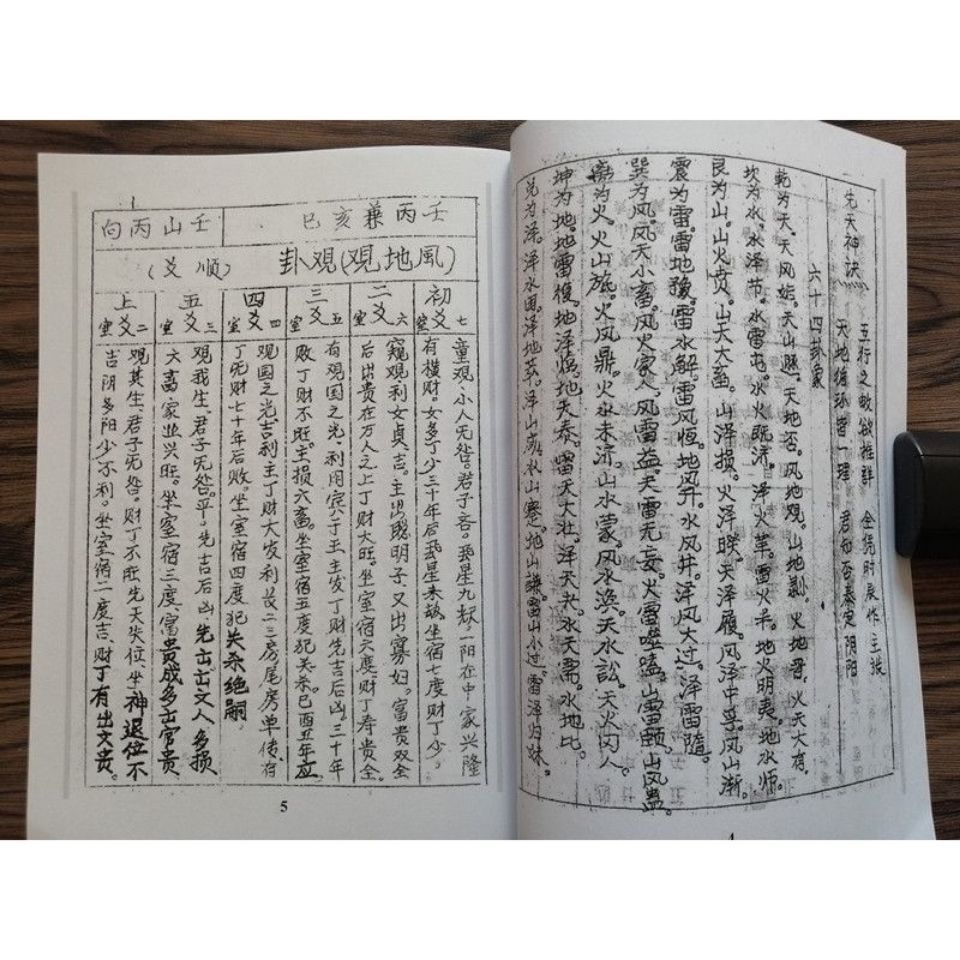 先天神诀
五行之妙欲推详 全凭时辰作主张
天地循环皆一理 君知否泰定阴阳
六十四卦象
乾为天。天风姤。天山遁。天地否。风地观。山地剥。火地晋。火天大有。
坎为水。水泽节。水雷屯。水火既济。泽火革。雷火丰。地火明夷。地水师。
艮为山。山火贲。山天大畜。山泽损。火泽睽。天泽履。风泽中孚。风山渐。
震为雷。雷地豫。雷水解。雷风恒。地风升。水风井。泽风大过。泽雷隨。
巽为风。风天小畜。风火家人。风雷益。天雷无妄。火雷噬嗑。山雷颐。山风蛊。
离为火。火山旅。火风鼎。火水未济。山水蒙。风水涣。天水訟。天火同人。
坤为地。地雷復。地泽临。地天泰。雷天大壮。泽天夬。水天需。水地比。
兑为泽。泽水困。泽地萃。泽山咸。水山蹇。地山謙。雷山小过。雷泽归妹。
4
壬丙兼亥巳
壬山丙向
(風地觀)觀卦
(順爻)
初爻 室七
童观小人无咎。君子吝。星九,一阳在中家兴隆
有横财。女多丁少三十年后星未,坐宿七度财丁少。
二爻 室六
窥观利女贞,吉。主出聪明子,又出寡妇。富贵双全
后出贵在万人之上丁财大旺。坐室宿六度,财丁寿贵全。
三爻 室五
有观国之光,利用宾于王,主发丁财先吉后凶。三十年
败丁财不旺。主损六畜。坐室宿五度犯关杀。巳酉丑年应
四爻 室四
观国之光吉利主丁财大发利长二三房尾房单传,存
丁无财七十年后败,坐室宿四度犯关杀绝嗣。
五爻 室三
观我生,君子无咎。平。先吉后凶,先出出文人,多损
六畜家业兴旺。坐室宿三度,富贵成多出富贵
上爻 室二
观其生,君子无咎。财丁不旺先天失位,坐神退位不
吉阴多阳少不利。坐室宿二度吉,财丁有出文贵。
5